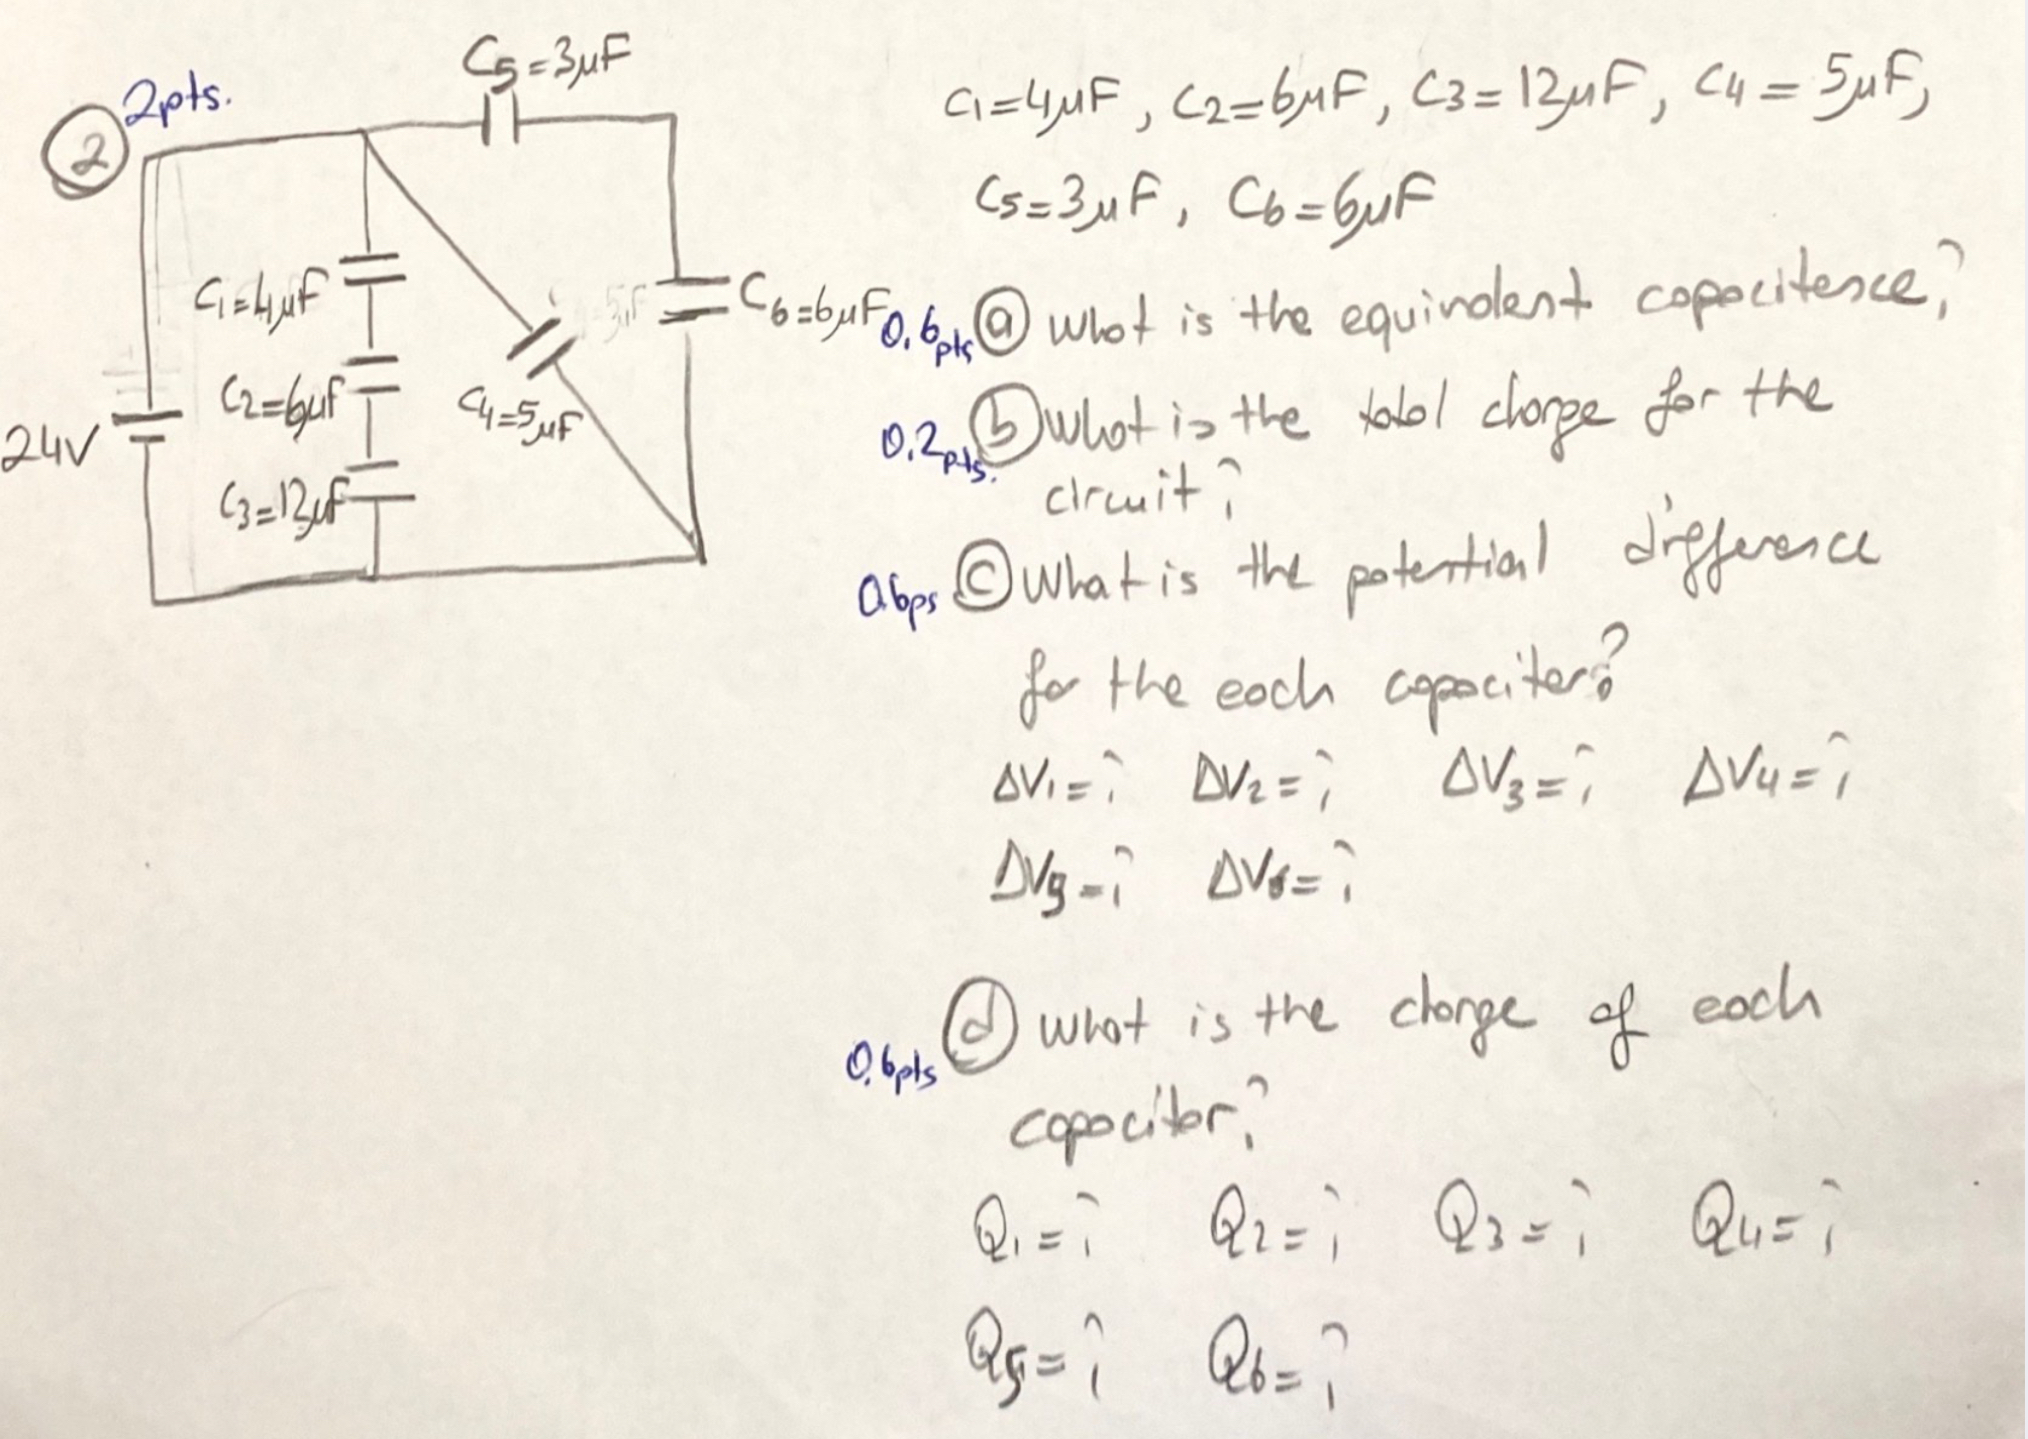 2 2pts.
C5=3μF
C1=4μF
C2=6μF
C3=12μF
C4=5μF
C6=6μF
24V
C1=4μF, C2=6μF, C3=12μF, C4=5μF,
C5=3μF, C6=6μF
0.6pts a what is the equivalent capacitence?
0.2pts. b what is the total charge for the
circuit?
0.6ps c what is the potential difference
for the each capaciter?
ΔV1=? ΔV2=? ΔV3=? ΔV4=?
ΔV5=? ΔV6=?
0.6pts d what is the charge of each
capacitor?
Q1=? Q2=? Q3=? Q4=?
Q5=? Q6=?